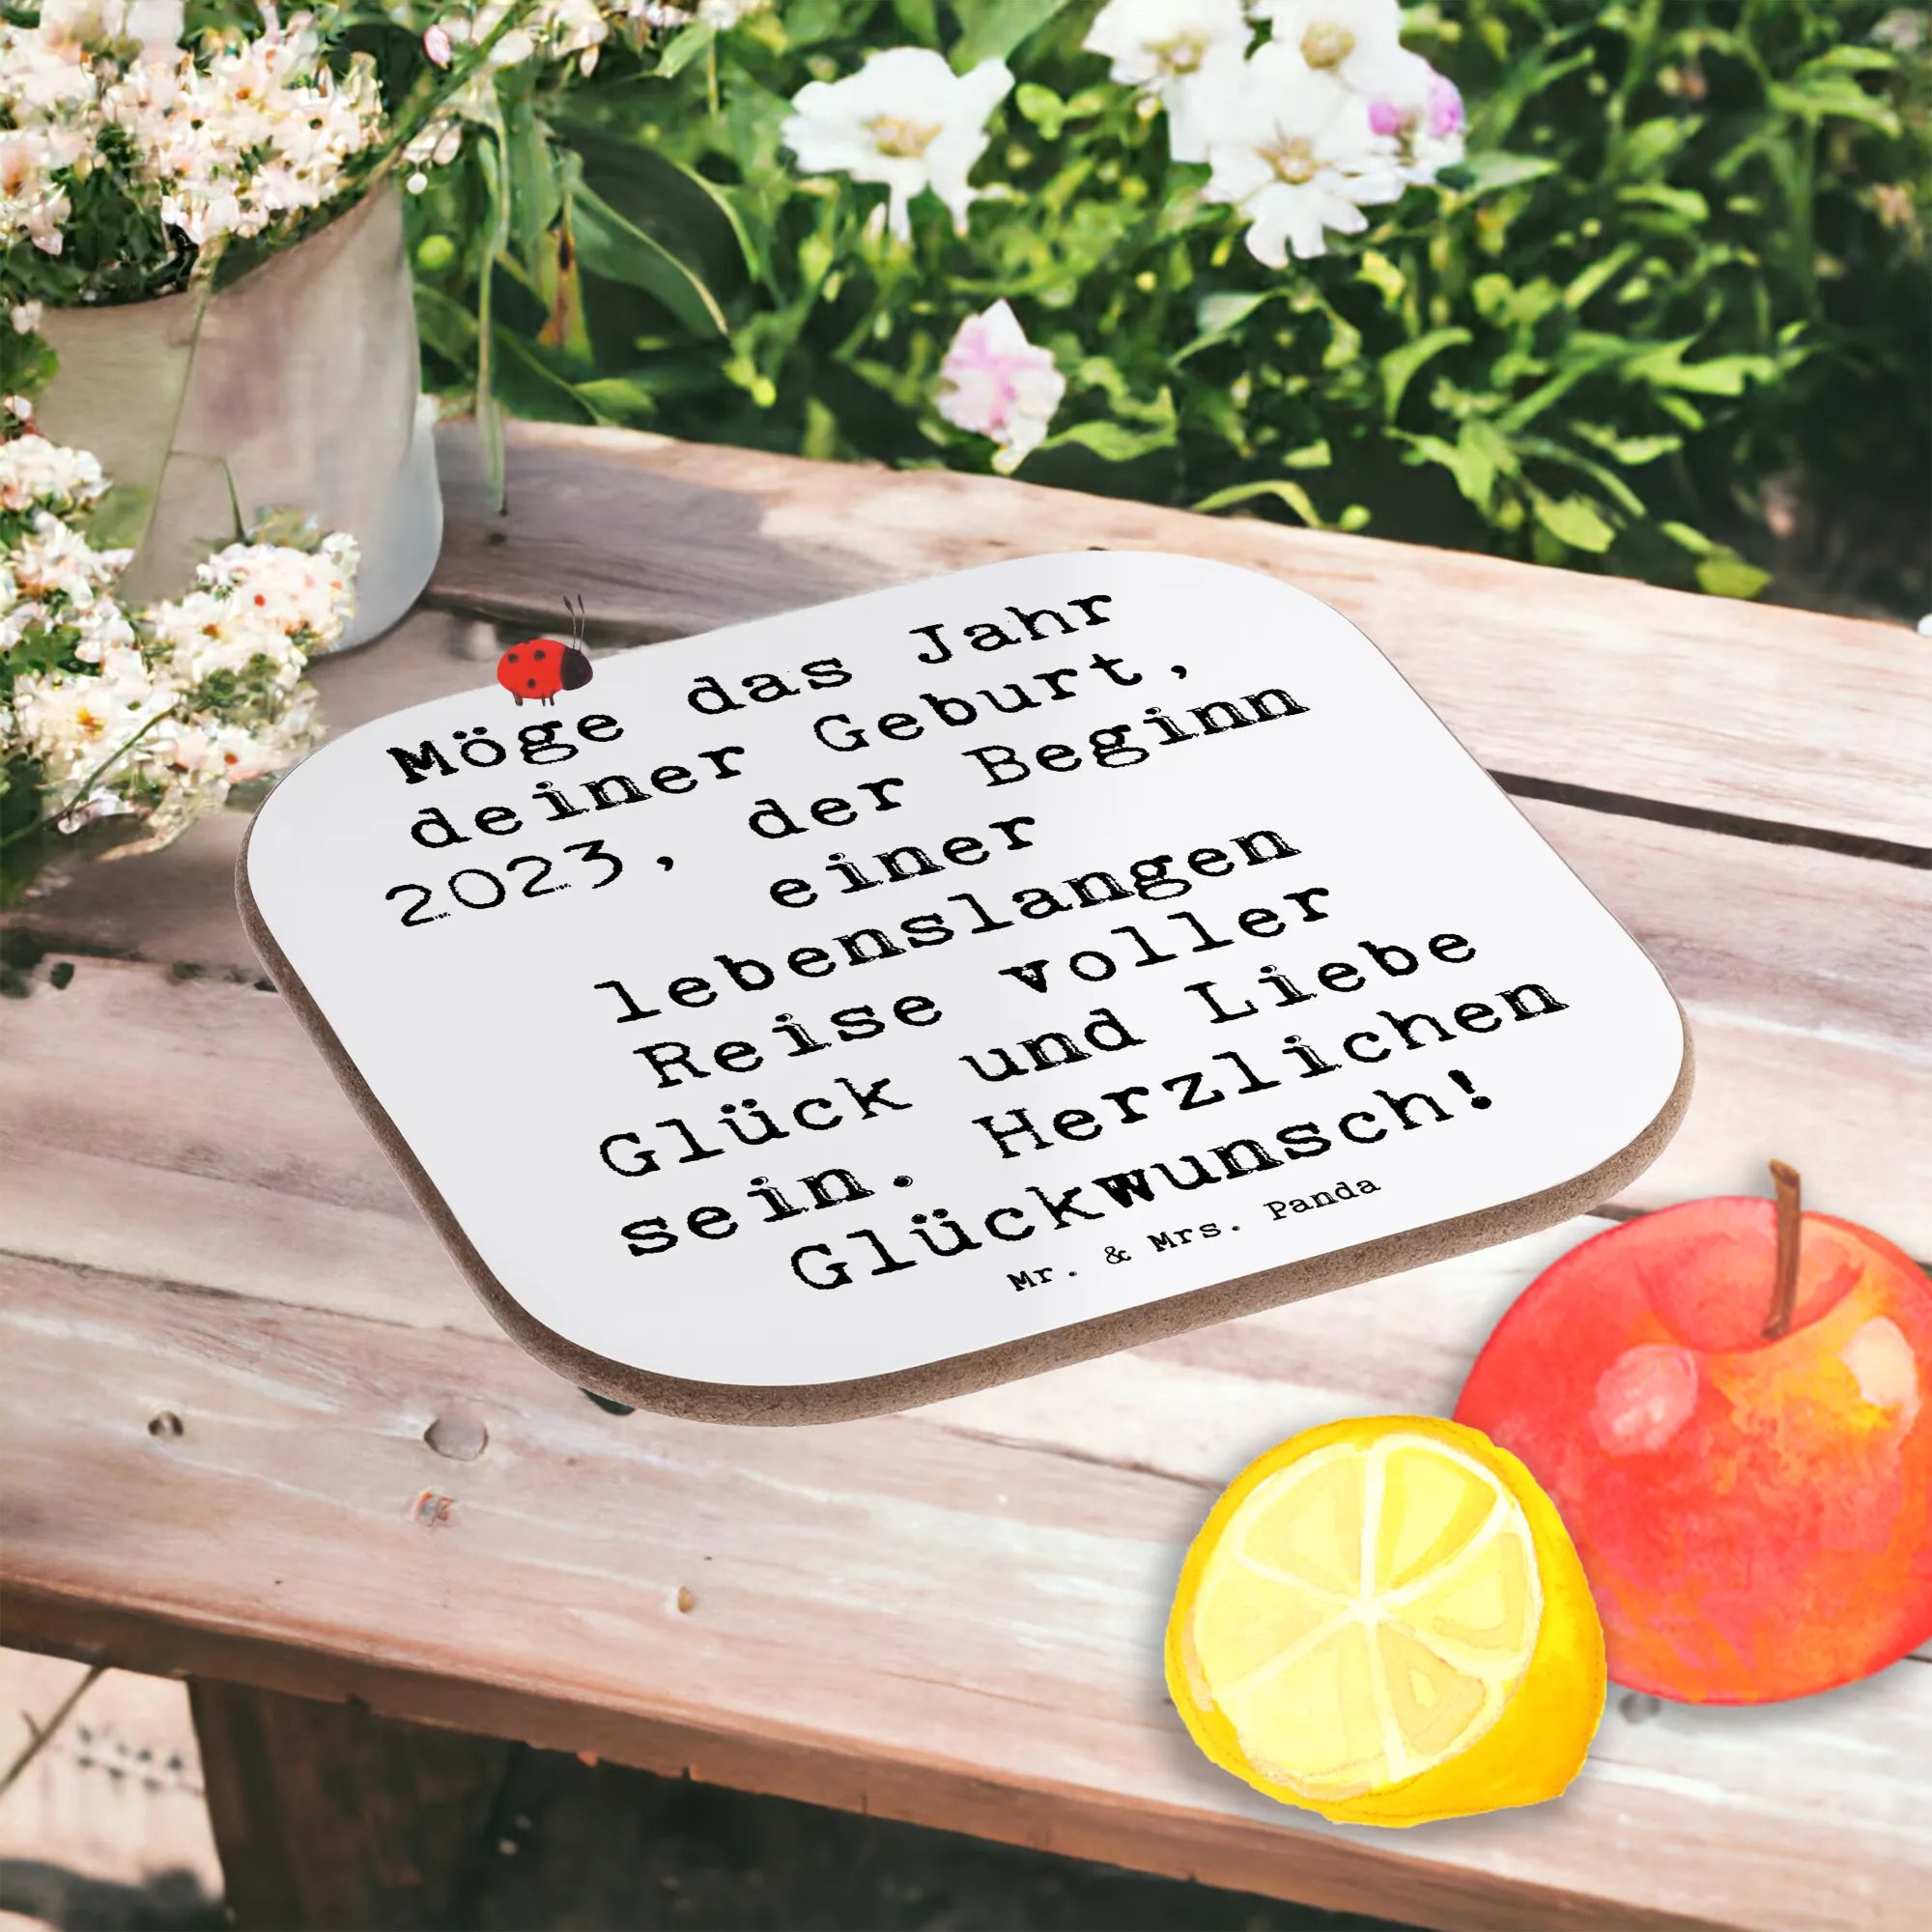 Möge das Jahr
deiner Geburt,
2023, der Beginn
einer
lebenslangen
Reise voller
Glück und Liebe
sein. Herzlichen
Glückwunsch!
Mr. & Mrs. Panda